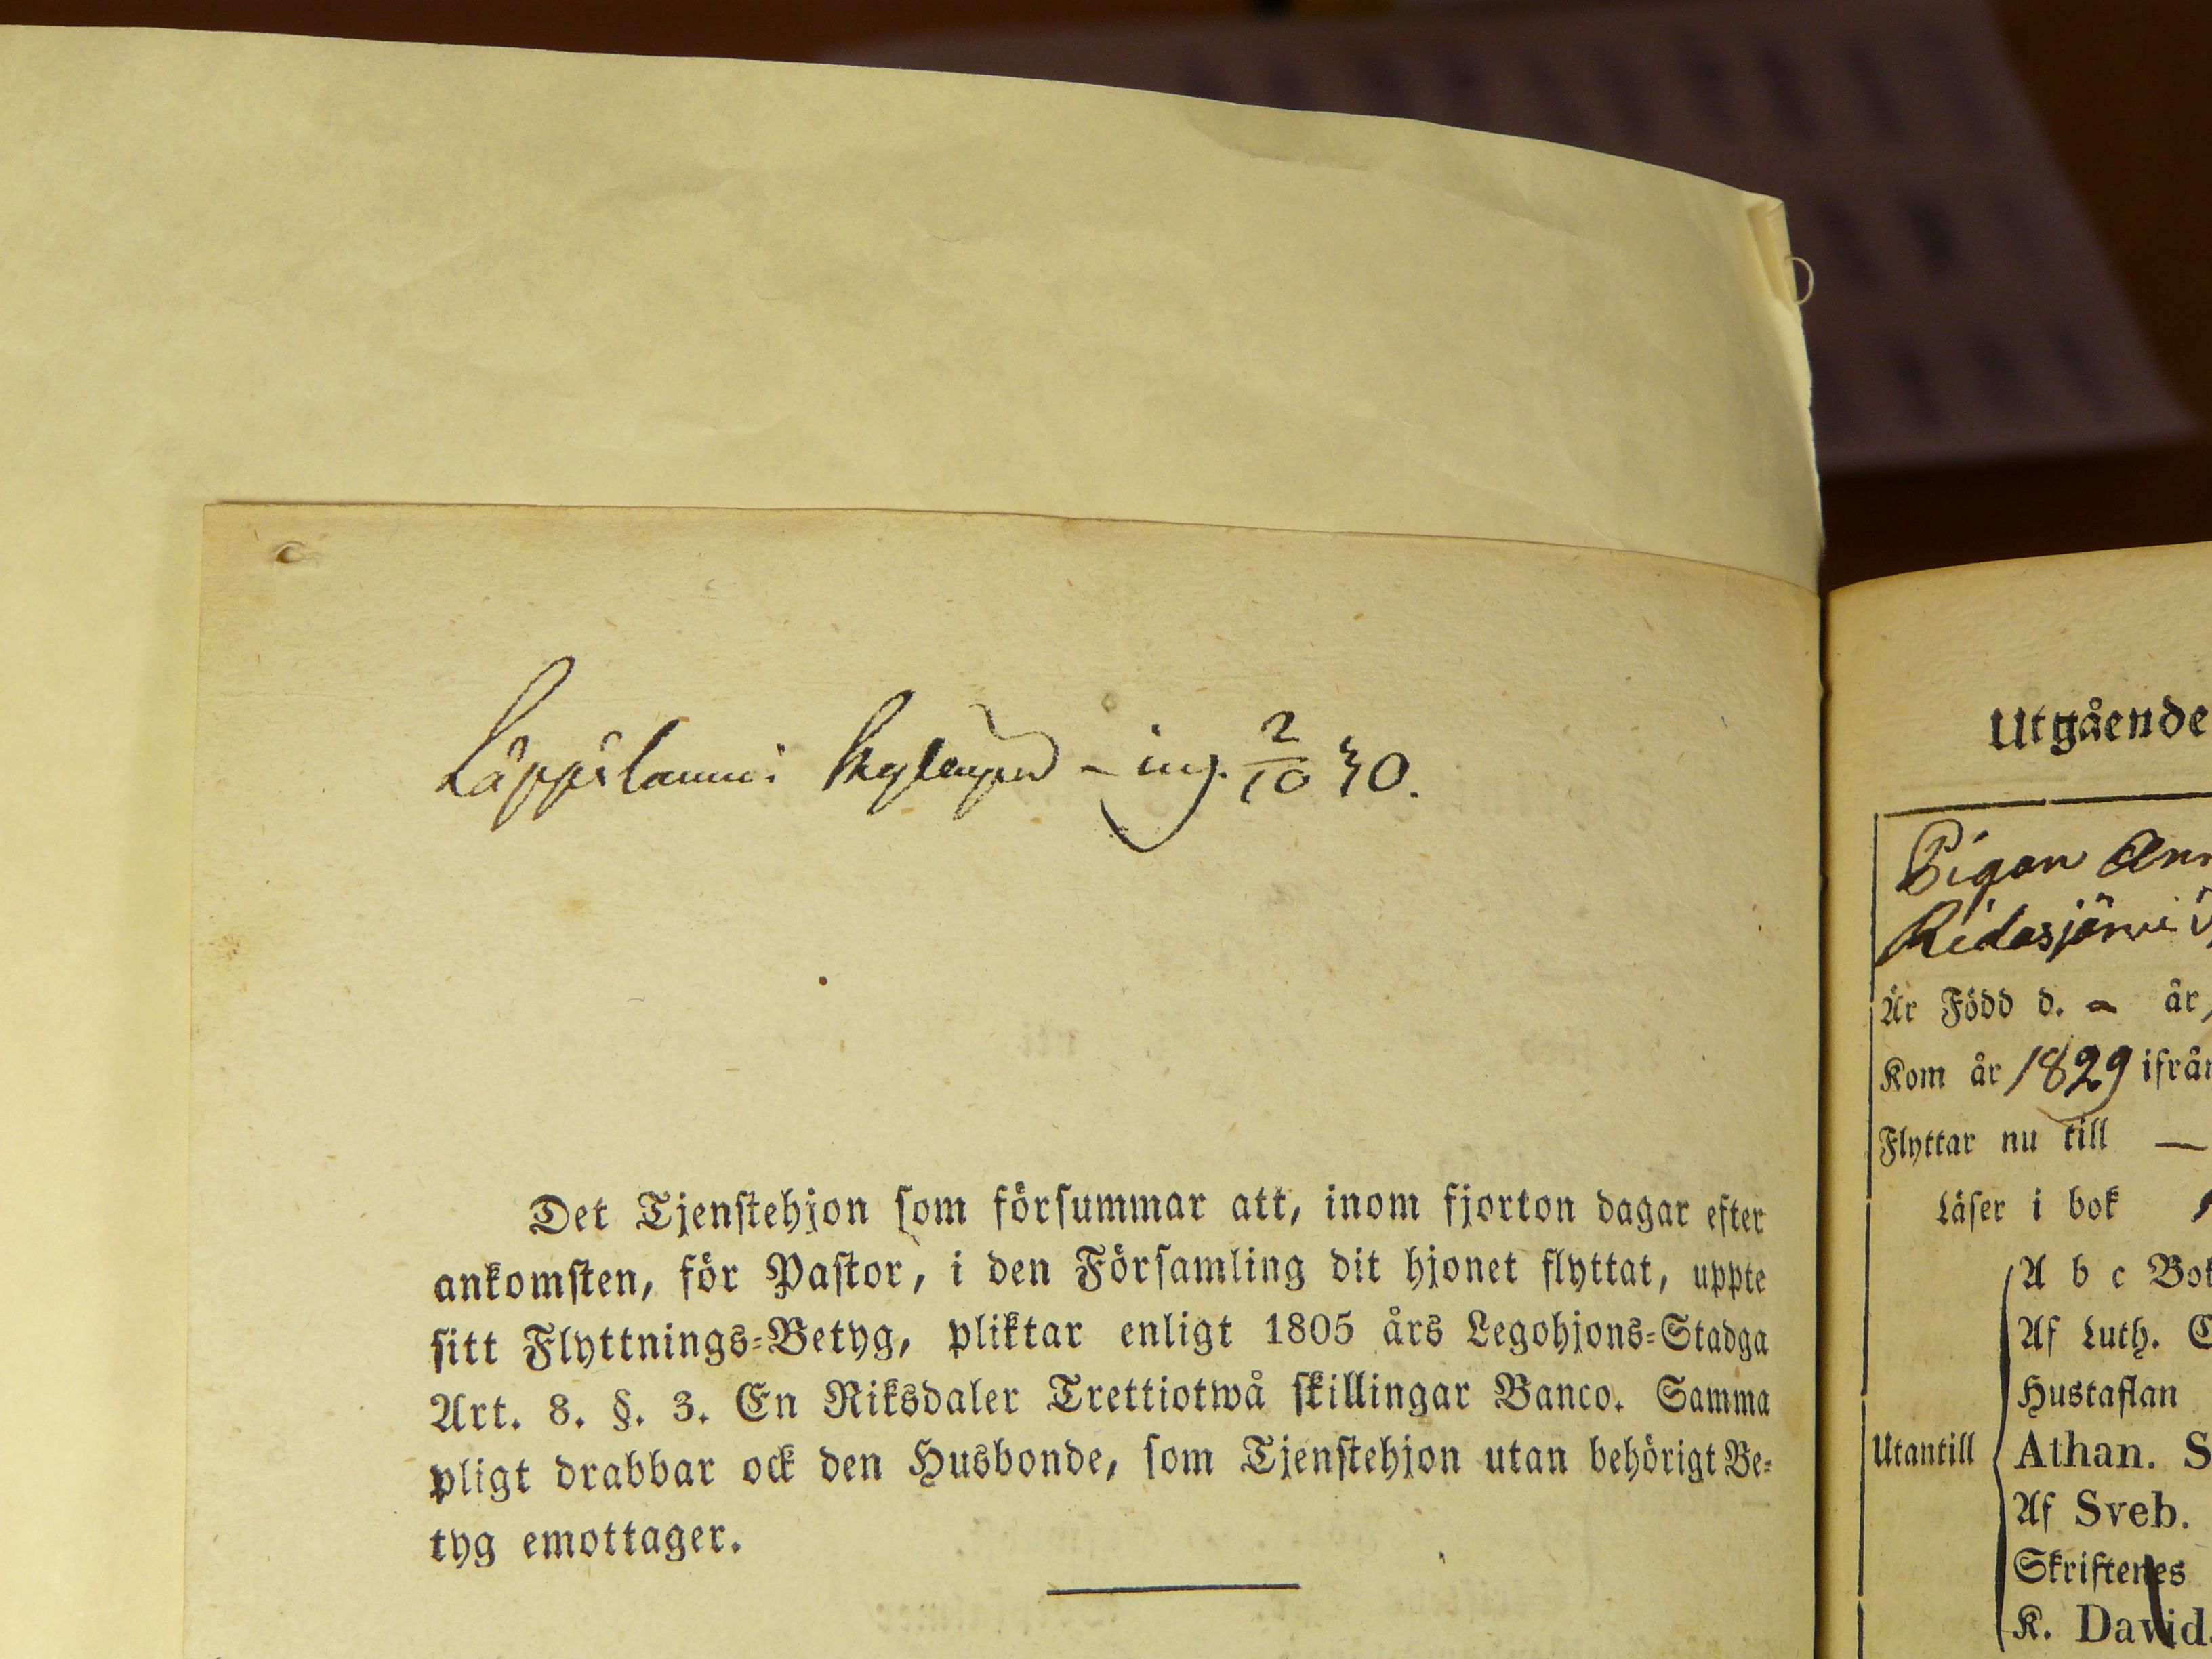 ing. 2/10 30.
Det Tjenstehjon som försummar att, inom fjorton dagar efter
ankomsten, för Pastor, i den Församling dit hjonet flyttat, uppte
sitt Flyttnings-Betyg, pliktar enligt 1805 års Legohjons-Stadga
Art. 8. §. 3. En Riksdaler Trettiotwå skillingar Banco. Samma
pligt drabbar ock den Husbonde, som Tjenstehjon utan behörigt Be-
tyg emottager.
Utgående
Pigan Ann
Ridasjärvi
Är Född d. - år,
Kom år 1829 ifrån
Flyttar nu till —
Läser i bok
Utantill
A b c Bok
Af Luth. C
Hustaflan
Athan. S
Af Sveb.
Skriftenes
K. David.